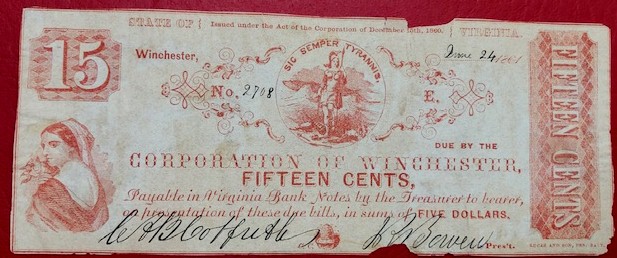 STATE OF Issued under the Act of the Corporation of December 1860. VIRGINIA.
15
Winchester, June 24 1861
SIC SEMPER TYRANNIS.
No. 2708 E.
DUE BY THE
CORPORATION OF WINCHESTER,
FIFTEEN CENTS,
Payable in Virginia Bank Notes by the Treasurer to bearer,
on presentation of these due bills, in sums of FIVE DOLLARS.
Pres't.
FIFTEEN CENTS
LUCAS AND SON, PRS. BALT.